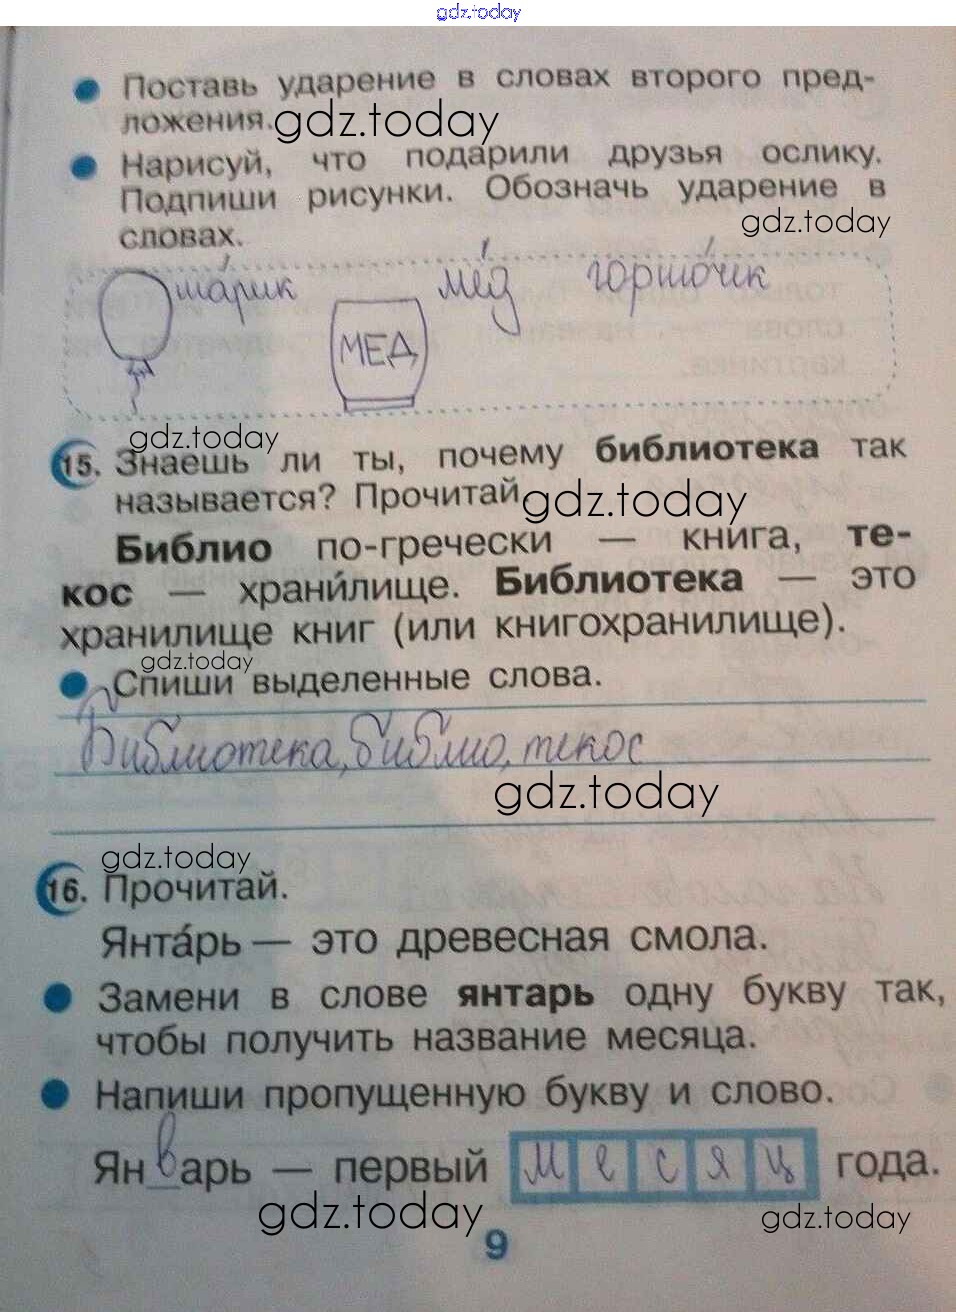 gdz.today
Поставь ударение в словах второго пред-
ложения. gdz.today
Нарисуй, что подарили друзья ослику.
Подпиши рисунки. Обозначь ударение в
gdz.today
словах.
ша́рик мёд горшо́чик
МЕД
gdz.today
15. Знаешь ли ты, почему библиотека так
называется? Прочитай gdz.today
Библио по-гречески — книга, те-
кос — храни́лище. Библиотека — это
хранилище книг (или книгохранилище).
gdz.today
Спиши выделенные слова.
Библиотека, библио, текос
gdz.today
gdz.today
16. Прочитай.
Янта́рь — это древесная смола.
Замени в слове янтарь одну букву так,
чтобы получить название месяца.
Напиши пропущенную букву и слово.
Январь — первый месяц года.
gdz.today gdz.today
9